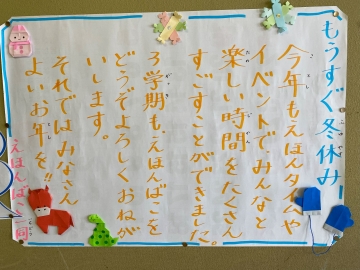 もうすぐ冬休み!
今年もえほんタイムや
イベントでみんなと
楽しい時間をたくさん
すごすことができました。
3学期も、えほんばこを
どうぞよろしくおねが
いします。
それではみなさん
よいお年を!!
えほんばこ一同